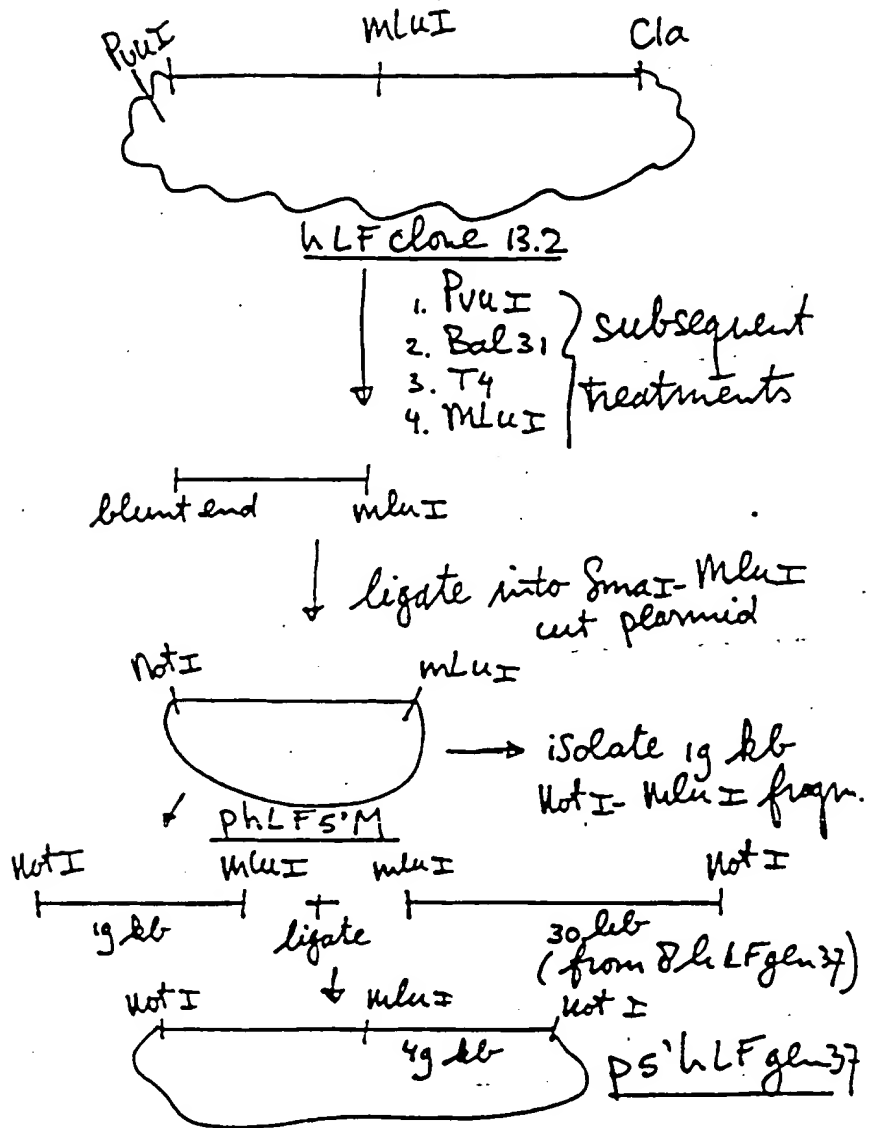 PvuI mLuI Cla
hLF clone 13.2
1. PvuI
2. Bal31
3. T4
4. MLuI
subsequent
treatments
blunt end mluI
ligate into SmaI-MluI
cut plasmid
NotI mLuI
isolate 19 kb
NotI-MluI fragm.
phLF5'M
NotI MluI mluI NotI
19 kb + ligate 30 kb
(from 8hLFgen37)
NotI mluI NotI
49 kb
p5'hLFgen37